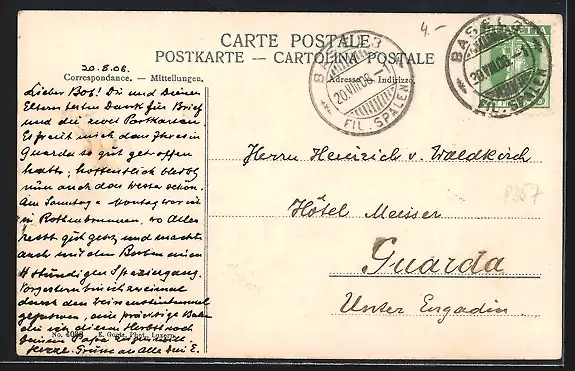 4.-
CARTE POSTALE
POSTKARTE — CARTOLINA POSTALE
20.8.08.
Correspondance. — Mitteilungen.
Adresse — Indirizzo
BASEL 3
20.VIII.08.
FIL. SPALEN
BASEL
20.VIII.08.
FIL. SPALEN
Lieber Bob! Du und Deine
Eltern besten Dank für Brief
und die zwei Postkarten.
Es freut mich dass Ihr es in
Guarda so gut getroffen
habt; hoffentlich bleibt
nun auch das Wetter schön.
Am Sonntag & Montag war ich
in Rothenbrunnen, wo Alles
recht gut geht und machte
auch mit den Buben einen
4 stündigen Spaziergang.
Vorgestern bin ich zweimal
durch den
gefahren, eine prächtige Bahn
die ich diesen Herbst noch
Deinem Papa
Herzl. Grüsse an alle Dein E.
Herrn Heinrich v. Waldkirch
Hôtel Meisser
P357
Guarda
Unter Engadin.
No. 4083 E. Goetz, Phot., Luzern.